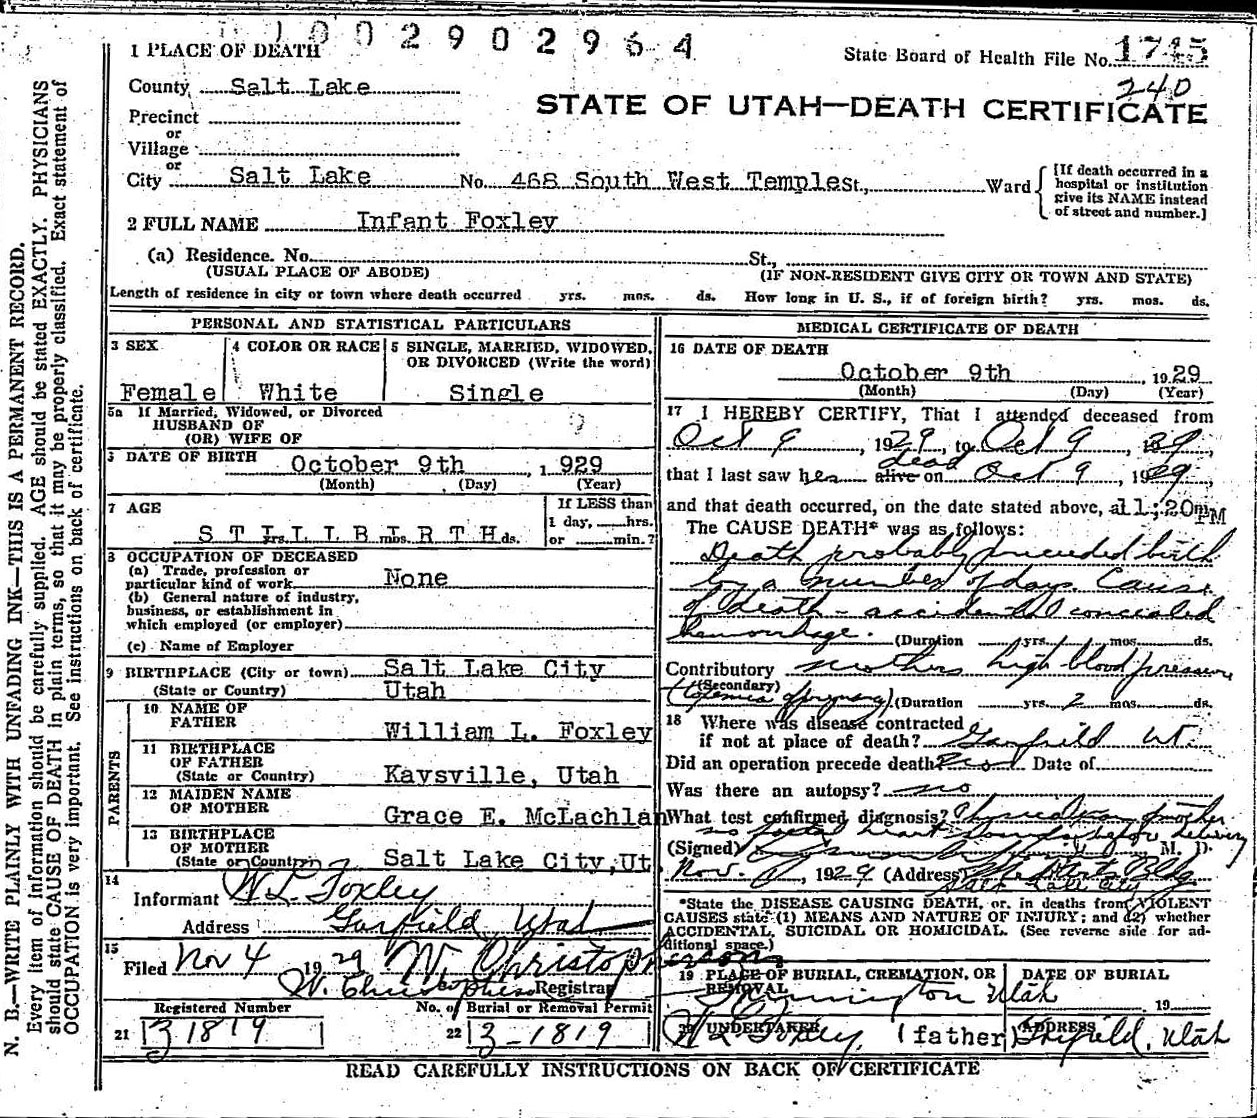 1002902964
1 PLACE OF DEATH
State Board of Health File No. 1745
240
County Salt Lake
STATE OF UTAH—DEATH CERTIFICATE
Precinct
or
Village
or
City Salt Lake No. 468 South West Temple St., Ward
[If death occurred in a hospital or institution give its NAME instead of street and number.]
2 FULL NAME Infant Foxley
(a) Residence. No. St.,
(USUAL PLACE OF ABODE) (IF NON-RESIDENT GIVE CITY OR TOWN AND STATE)
Length of residence in city or town where death occurred yrs. mos. ds. How long in U. S., if of foreign birth? yrs. mos. ds.
PERSONAL AND STATISTICAL PARTICULARS
3 SEX 4 COLOR OR RACE 5 SINGLE, MARRIED, WIDOWED,
OR DIVORCED (Write the word)
Female White Single
5a If Married, Widowed, or Divorced
HUSBAND OF
(OR) WIFE OF
DATE OF BIRTH October 9th, 1929
(Month) (Day) (Year)
7 AGE If LESS than
1 day, hrs.
STILLBIRTH yrs. mos. ds. or min.?
8 OCCUPATION OF DECEASED
(a) Trade, profession or
particular kind of work None
(b) General nature of industry,
business, or establishment in
which employed (or employer)
(c) Name of Employer
9 BIRTHPLACE (City or town) Salt Lake City
(State or Country) Utah
PARENTS
10 NAME OF
FATHER William L. Foxley
11 BIRTHPLACE
OF FATHER
(State or Country) Kaysville, Utah
12 MAIDEN NAME
OF MOTHER Grace E. McLachlan
13 BIRTHPLACE
OF MOTHER
(State or Country) Salt Lake City, Ut
14
Informant W L Foxley
Address Garfield, Utah
15
Filed Nov 4 1929 W. Christopherson
W. Christopherson Registrar
Registered Number No. of Burial or Removal Permit
21 31819 22 3-1819
MEDICAL CERTIFICATE OF DEATH
16 DATE OF DEATH
October 9th, 1929
(Month) (Day) (Year)
17 I HEREBY CERTIFY, That I attended deceased from
Oct 9, 1929, to Oct 9, 1929,
dead
that I last saw her alive on Oct 9, 1929
and that death occurred, on the date stated above, at 1:20 m PM
The CAUSE DEATH* was as follows:
Death probably preceded birth
by a number of days. Cause
of death - accidental concealed
hemorrhage. (Duration yrs. 1 mos. ds.
Contributory mothers high blood pressure
(Secondary)
(Toxemia of pregnancy) (Duration yrs. 2 mos. ds.
18 Where was disease contracted
if not at place of death? Garfield Ut.
Did an operation precede death? no Date of
Was there an autopsy? no
What test confirmed diagnosis? of mother
no foetal heart sounds before delivery
(Signed) M. D.
Nov. , 1929 (Address) Bldg
Salt Lake City
*State the DISEASE CAUSING DEATH, or, in deaths from VIOLENT
CAUSES state (1) MEANS AND NATURE OF INJURY; and (2) whether
ACCIDENTAL, SUICIDAL OR HOMICIDAL. (See reverse side for ad-
ditional space.)
19 PLACE OF BURIAL, CREMATION, OR DATE OF BURIAL
REMOVAL
Farmington Utah 19
20 UNDERTAKER ADDRESS
W L Foxley. (father) Garfield, Utah
READ CAREFULLY INSTRUCTIONS ON BACK OF CERTIFICATE
N. B.—WRITE PLAINLY WITH UNFADING INK—THIS IS A PERMANENT RECORD.
Every item of information should be carefully supplied. AGE should be stated EXACTLY. PHYSICIANS
should state CAUSE OF DEATH in plain terms, so that it may be properly classified. Exact statement of
OCCUPATION is very important. See instructions on back of certificate.